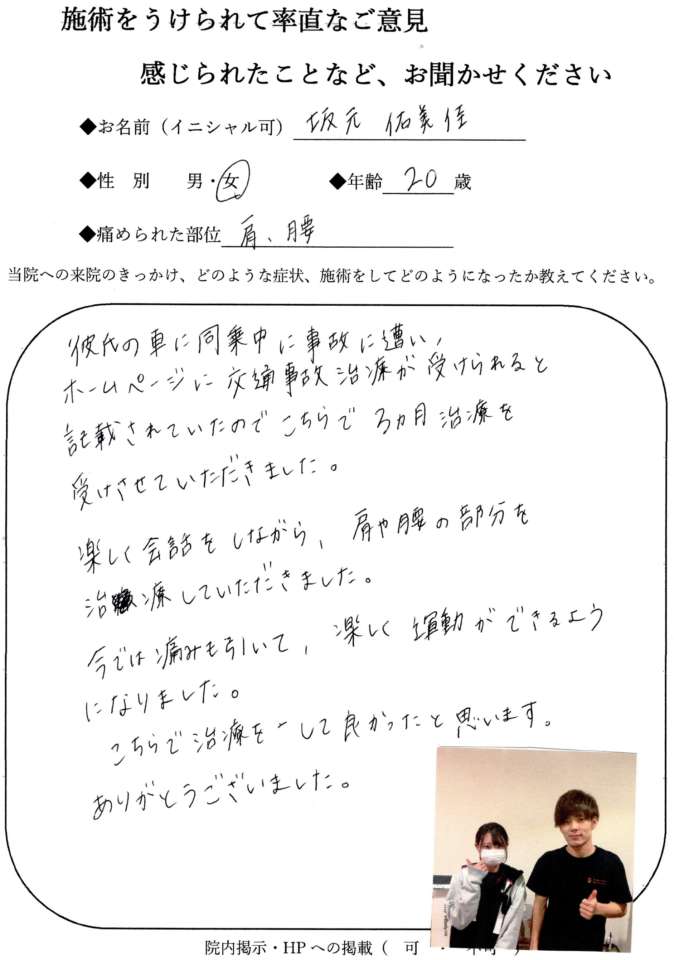 施術をうけられて率直なご意見
感じられたことなど、お聞かせください
◆お名前（イニシャル可） 坂元 佑美佳
◆性 別 男・女 ◆年齢 20 歳
◆痛められた部位 肩、腰
当院への来院のきっかけ、どのような症状、施術をしてどのようになったか教えてください。
彼氏の車に同乗中に事故に遭い、
ホームページに交通事故治療が受けられると
記載されていたのでこちらで3ヵ月治療を
受けさせていただきました。
楽しく会話をしながら、肩や腰の部分を
治療していただきました。
今では痛みも引いて、楽しく運動ができるよう
になりました。
こちらで治療をして良かったと思います。
ありがとうございました。
院内掲示・HPへの掲載（ 可 ・ 不可 ）